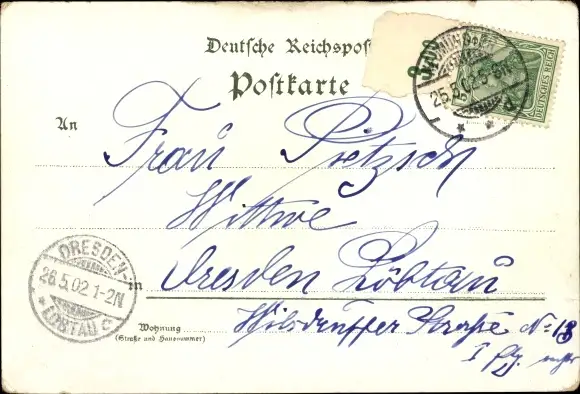 Deutsche Reichspost
Postkarte
3,00
25.5.02 5-6N
DEUTSCHES REICH
An
Frau Pietzsch
Wittwe
in Dresden Löbtau
DRESDEN-
26.5.02 1-2N
* LÖBTAU c
Wohnung
(Straße und Hausnummer)
Wilsdruffer Strasse No 13
I